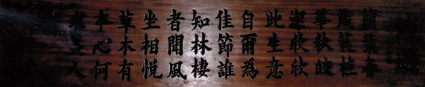 蘭葉春
葳蕤桂
華秋皎
潔欣欣
此生意
自爾為
佳節誰
知林棲
者聞風
坐相悅
草木有
本心何
求美人